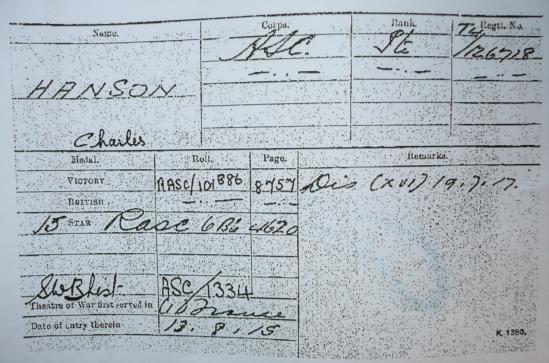 Name. Corps. Rank. Regtl. No.
HANSON ASC. Pte T4/126718
Charles
Medal. Roll. Page. Remarks.
VICTORY RASC/101B86 8757 Dis (XVI) 19.7.17.
BRITISH
15 STAR RASC 6B6 4620
SWB List ASC/1334
Theatre of War first served in (1) France
Date of entry therein 13.8.15
K. 1380.